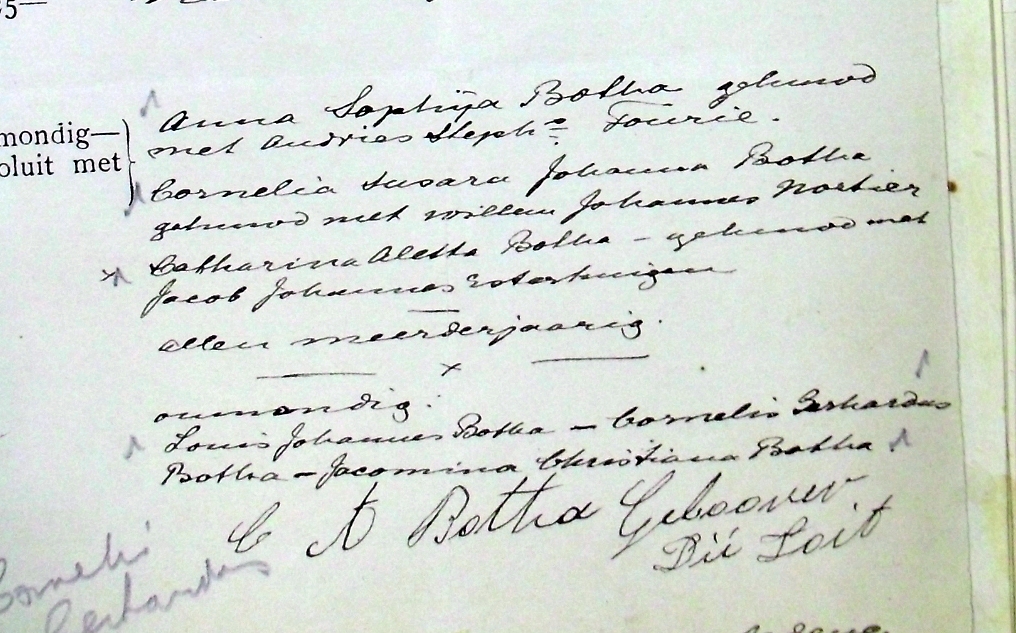 mondig—
oluit met
Anna Sophija Botha gehuwd
met Andries Stephs Fourie.
Cornelia Susara Johanna Botha
gehuwd met willem Johannes Nortier
Catharina Aletta Botha – gehuwd met
Jacob Johannes Esterhuizen
allen meerderjaarig.
x
onmondig:
Louis Johannes Botha – Cornelis Gerhardus
Botha – Jacomina Christiana Botha.
C A Botha Gebooren
Du Toit
Cornelis
Gerhardus